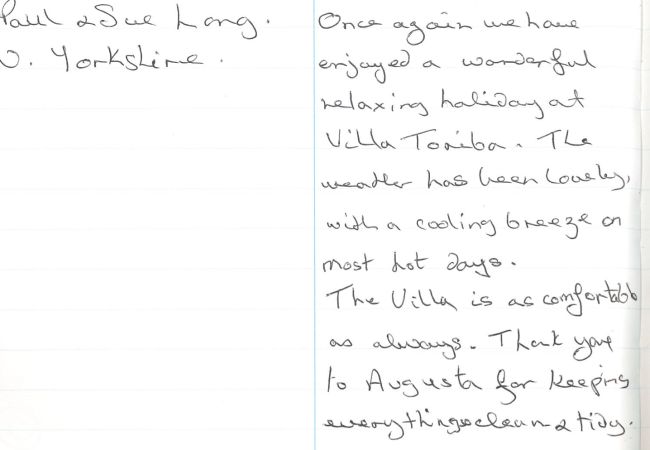 Paul & Sue Long.
N. Yorkshire.
Once again we have
enjoyed a wonderful
relaxing holiday at
Villa Toniba. The
weather has been lovely,
with a cooling breeze on
most hot days.
The Villa is as comfortable
as always. Thank you
to Augusta for keeping
everything so clean & tidy.